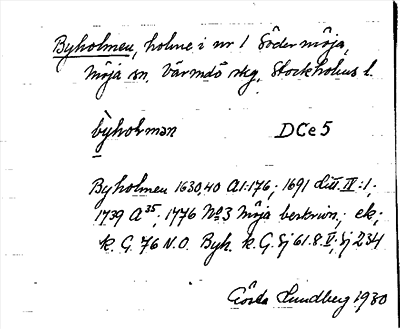 Byholmen, holme i nr 1 Södermöja,
Möja sn, Värmdö skg, Stockholms l.
byholmən
DCe5
Byholmen 1630,40 A1:176; 1691 Litt. IV:1;
1739 A 35, 1776 No 3 Möja beskrivn.; ek;
k. G. 76 N.O. Byh. k. G. Sj 61.8.V; Sj 234
Gösta Lundberg 1930